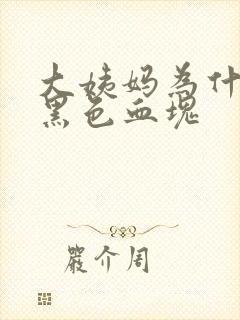 大姨妈为什
黑色血块
严介周